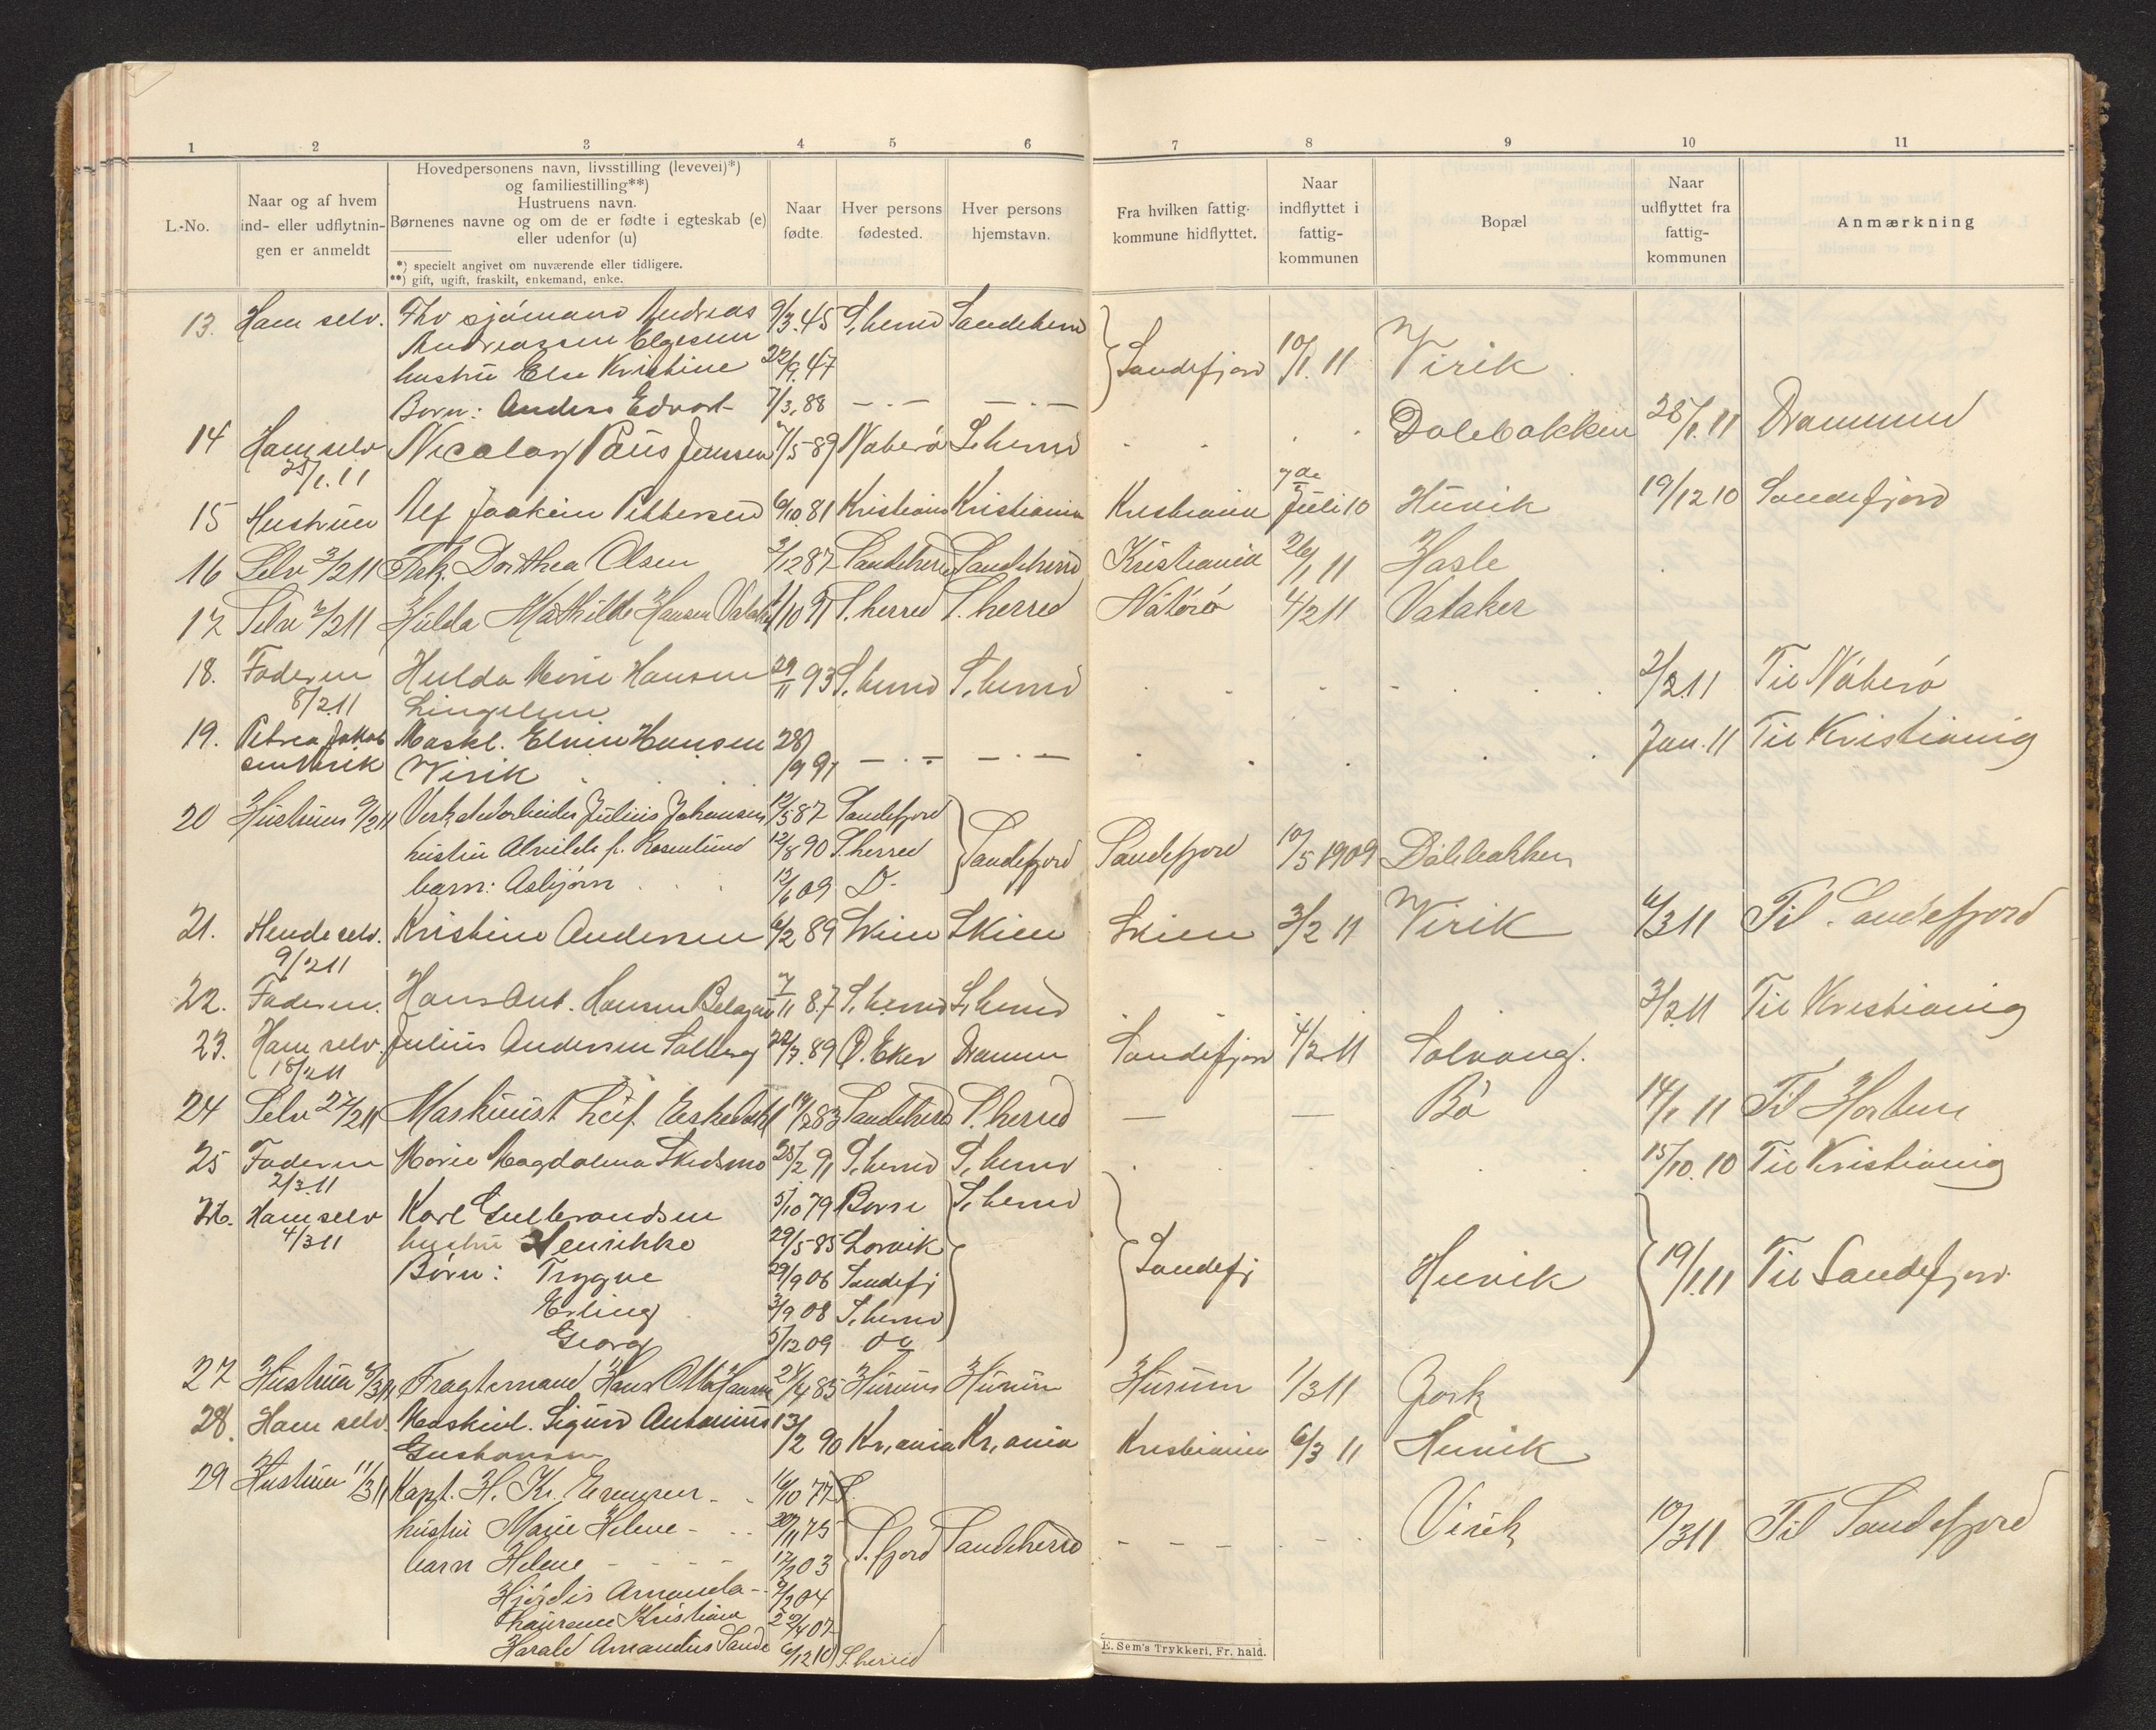 1 2 3 4 5 6 7 8 9 10 11
L.-No.
Naar og af hvem
ind- eller udflytnin-
gen er anmeldt
Hovedpersonens navn, livsstilling (levevei)*)
og familiestilling**)
Hustruens navn.
Børnenes navne og om de er fødte i egteskab (e)
eller udenfor (u)
*) specielt angivet om nuværende eller tidligere.
**) gift, ugift, fraskilt, enkemand, enke.
Naar
fødte.
Hver persons
fødested.
Hver persons
hjemstavn.
Fra hvilken fattig-
kommune hidflyttet.
Naar
indflyttet i
fattig-
kommunen
Bopæl
Naar
udflyttet fra
fattig-
kommunen
Anmærkning
13. Ham selv. Fhv sjømand Andreas 9/3.45 S. herred Sandeherred
Andreassen Elgesem
hustru Else Kristine 22/9.47 Sandefjord 10/1.11 Virik
Børn: Anders Edvart 7/3.88 — . — — . —
14 Ham selv Nicolay Paus Jenssen 7/5 89 Nøterø S. herred Dolebakken 28/1.11 Drammen
25/1.11
15 Hustruen Alf Joakim Pettersen 6/10 81 Kristiania Kristiania Kristiania Juli 10 Hunik 19/12 10 Sandefjord
16 Selv 3/2 11 Frk. Dorthea Olsen 3/12 87 Sandeherred Sandeherred Kristiania 26/1 11 Hasle
17 Selv 7/2 11 Hulda Mathilde Hansen Vataker 1/10 91 S. herred S. herred Nøterø 4/2 11 Vataker
18. Faderen Hulda Marie Hansen 29/11 93 S. herred S. herred 2/2.11 Til Nøterø
8/2.11 Lingelem
19. Petrea Jakob Maskl. Elmer Hansen 28/9 91 — . — — . — Jan. 11 Til Kristiania
sen Virik Virik
20 Hustruen 9/2 11 Verkstedarbeider Julius Johansen 12/5 87 Sandefjord
hustru Alvilde f. Rosenlund 12/8 90 S. herred Sandefjord Sandefjord 10/5 1909 Dølebakken
barn: Asbjørn 12/6 09 D-
21. Hende selv. Kristine Andersen 6/2 89 Skien Skien Skien 3/2 11 Virik 6/3 11 Til Sandefjord
9/2 11
22. Faderen. Hans Ant. Hansen 7/11 87 S. herred S. herred 3/2.11 Til Kristiania
23. Ham selv. Julius Andersen Solberg 22/7.89 Ø. Eker Drammen Sandefjord 4/2.11 Solvang.
18/2 11
24 Selv 27/2 11 Maskinist Leif 19/2 83 Sandeherred S. herred — — Bø 14/1 11 Til Horten
25 Faderen Marie Magdalena Skedsmo 25/2.91 S. herred S. herred 15/10.10 Til Kristiania
2/3.11
26. Ham selv Karl Gulbrandsen 5/10 79 Borre S. herred
4/3 11 hustru Henrikke 29/5 85 Larvik
Børn: Trygve 29/9 06 Sandefj Sandefj Hunik 19/1.11 Til Sandefjord.
Erling 3/9 08 S. herred
Georg 5/12 09 do
27 Hustru 8/3 11 Fragtemand Hans Otto Hansen 21/4 85 Hurum Hurum Hurum 1/3 11 Gork
28. Ham selv. Maskinl. Sigurd Antonius 13/2 90 Kr,ania Kr,ania Kristiania 6/3 11 Hunik
Gustavsen
29 Hustru 11/3 11 Kapt. H. Kr. 11/10 77 S.
hustru Marie Helene 20/11 75 S. fjord Sandeherred Virik 10/3 11 Til Sandefjord
barn Helene 17/2 03
Hjørdis Amanda 9/2 04
Laurence Kristiane 22/4 07
Harald Amandus Sande 6/12 10 S. herred
E. Sem's Trykkeri, Fr. hald.